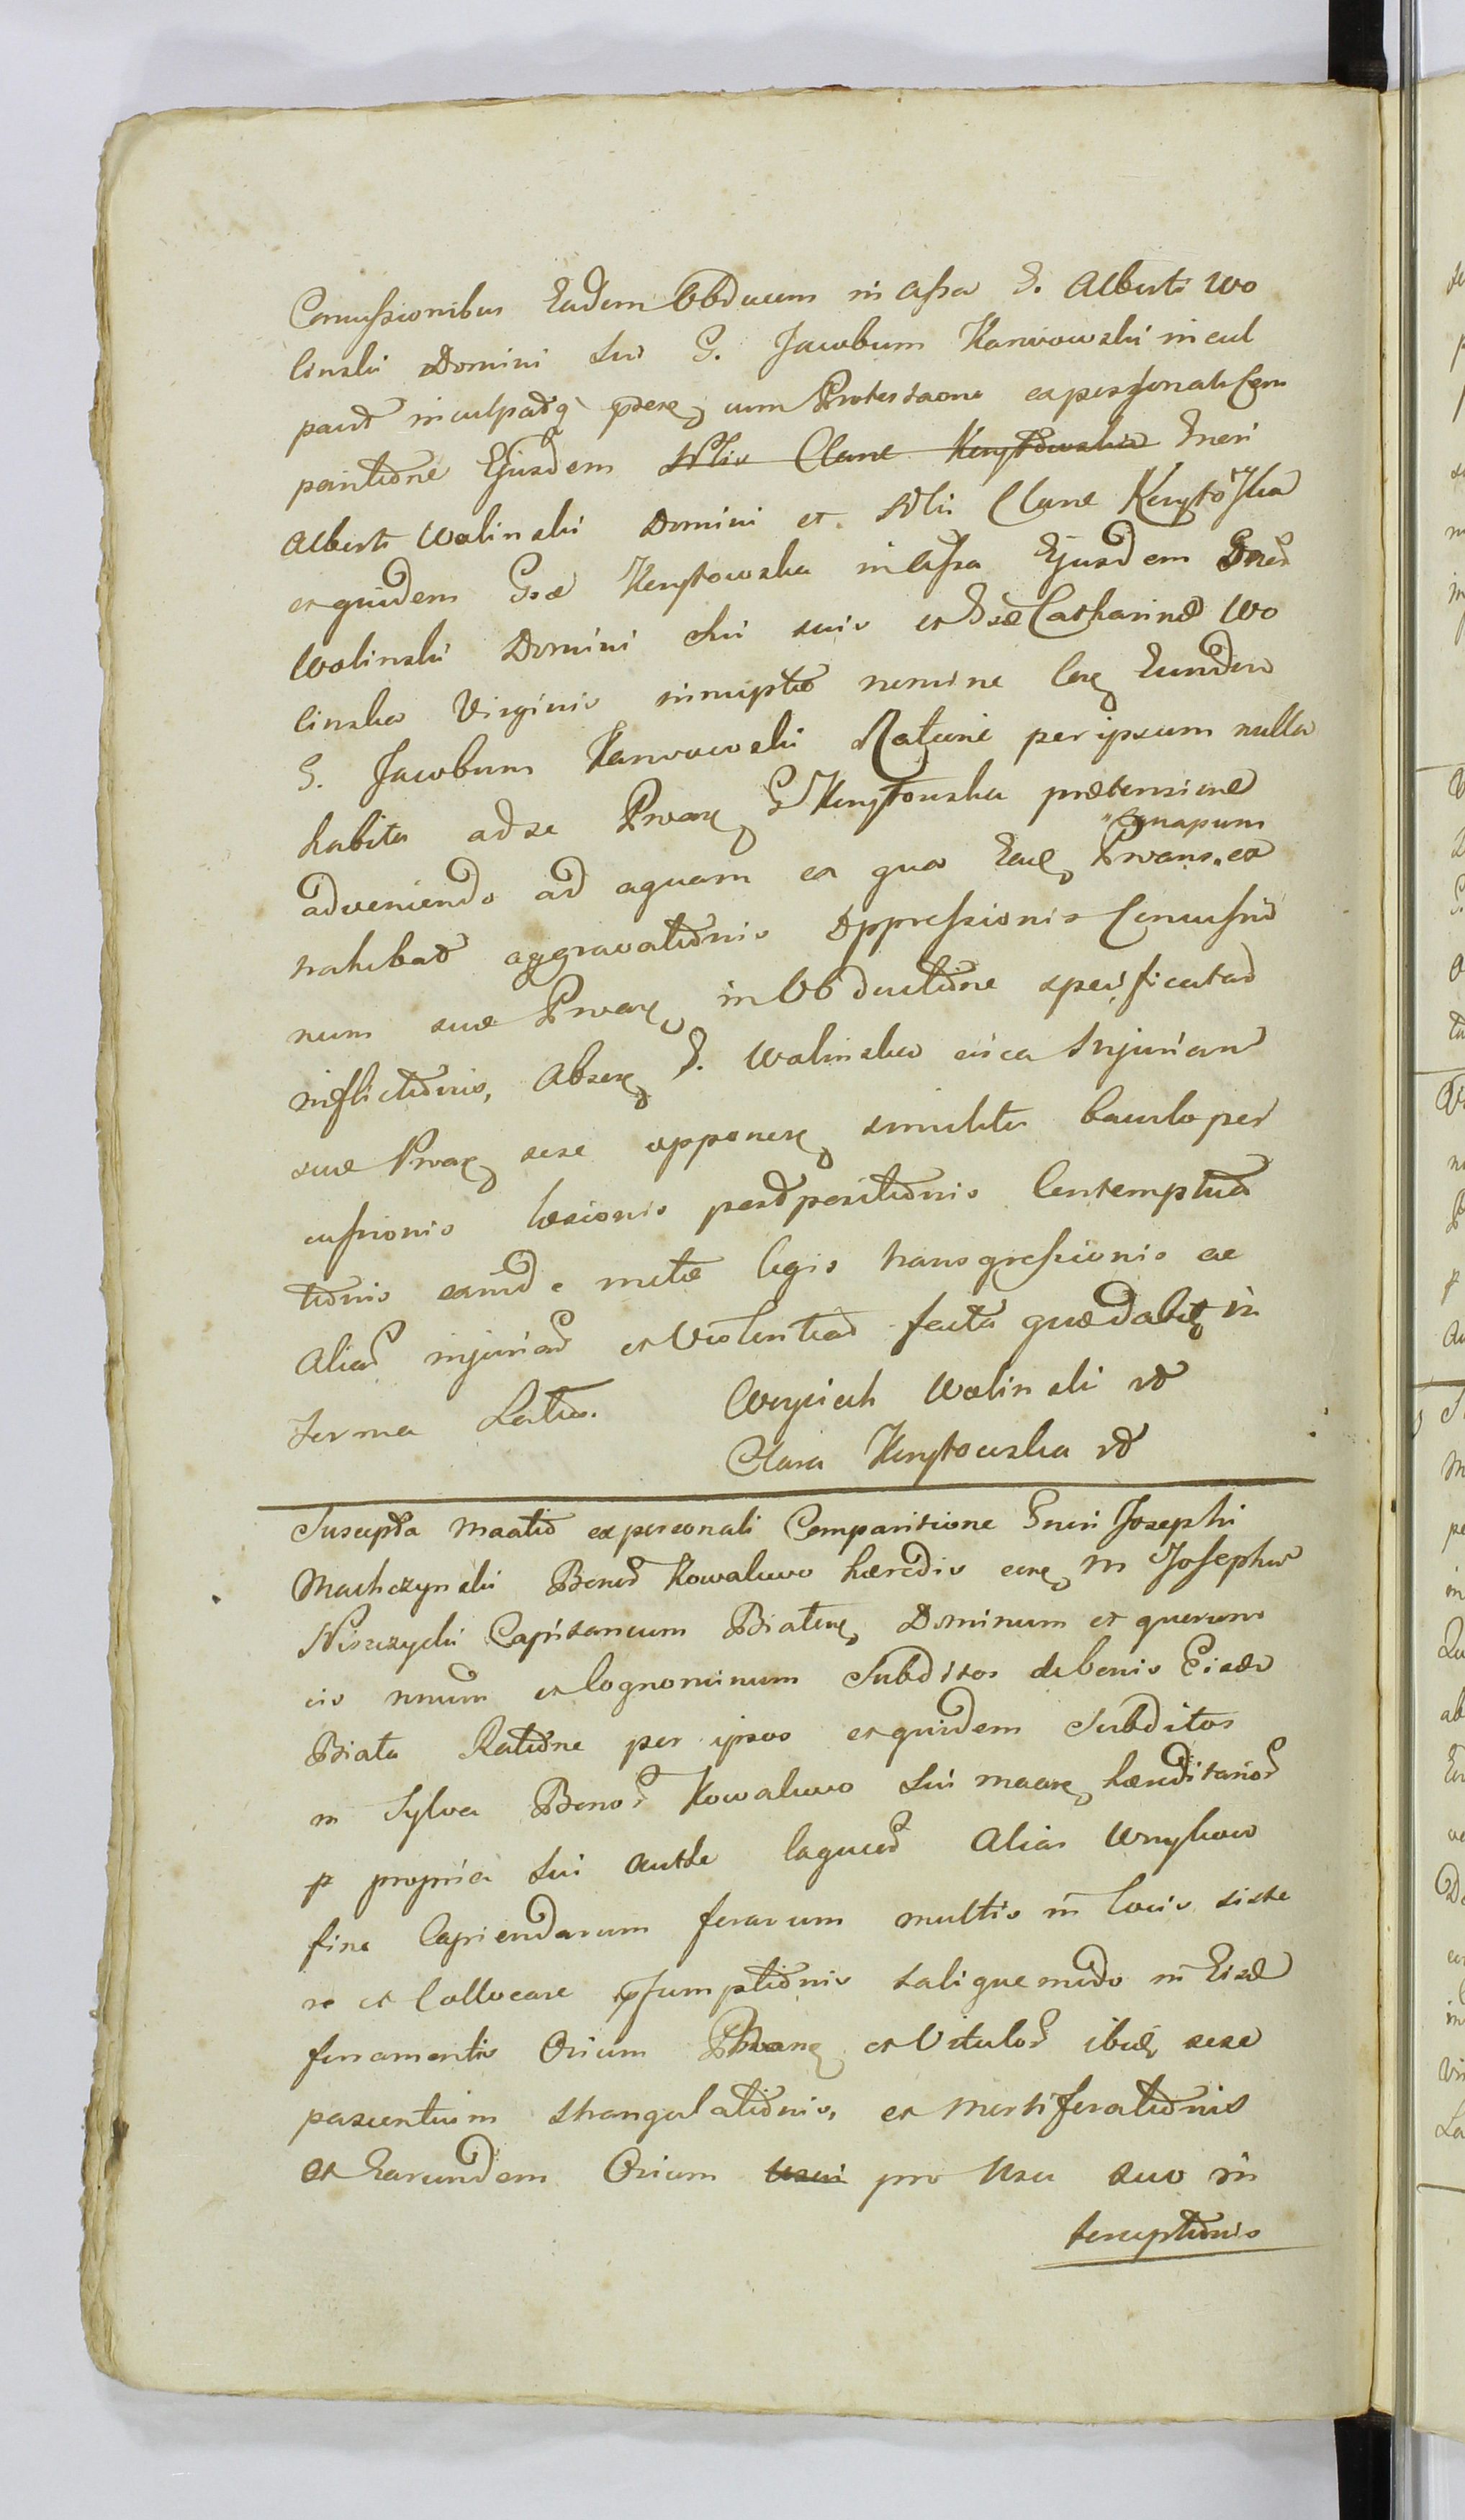 Concussionibus Eadem Obducens in assa G. Alberti Wo
linski Domini sui G. Jacobum Karwowski incul
pavit inculpatq prese cum Protestaone expersonali Com
paritione Ejusdem Nlis Clarae Kerystowska Gnesi
Alberti Wolinski Domini et Nlis Clarae Kerysto Ska
et quidem Gsa Kerystowska in assa Ejusdem Gnesi
Wolinski Domini sui suis et Gsae Catharinae Wo
linska Virginis innuptae nomine Core Eundem
G. Jacobum Karwowski Ratione per ipsum nulla
habita ad se Prware G Kerystowska praetensione
adveniendo ad aquam ex qua Eade Prwans. ex
"quapum
trahebat aggravationis Oppressionis Concussio
num suae Prware in Obductione specificatas
inflictionis, Absere G. Wolinska circa Injuriam
suae Prware sese opponere similiter baculo per
cussionis laesionis perdpositionis Contemptua
tionis eamd metae legis transgressionis ac
Alias injurias et Violentias facta quaedabit in
forma Latio. Woyciech Wolinski
Clara Kerystowska
Suscepta maatio ex personali Comparitione Gnesi Josephi
Machczynski Bonor Kowalewo haeredis core M Josephum
Niszczycki Capitaneum Biatens Dominum et quorum
vis nnum et Cognominum Subditos de bonis Eisdem
Biata Ratione per ipsos et quidem Subditos
in Sylva Bonor Kowalewo sui maare haereditarior
p propria sui autte laqueor Alias Wnykow
fine Capiendarum ferarum multis in locis siste
re et Collocare psumptionis talique modo in Eisd
ferramentis Ovium Prware et Vitulor ibid sese
pascentium strangulationis, et mortiferationis
et Earundem Ovium usui pro usu suo in
terceptionis